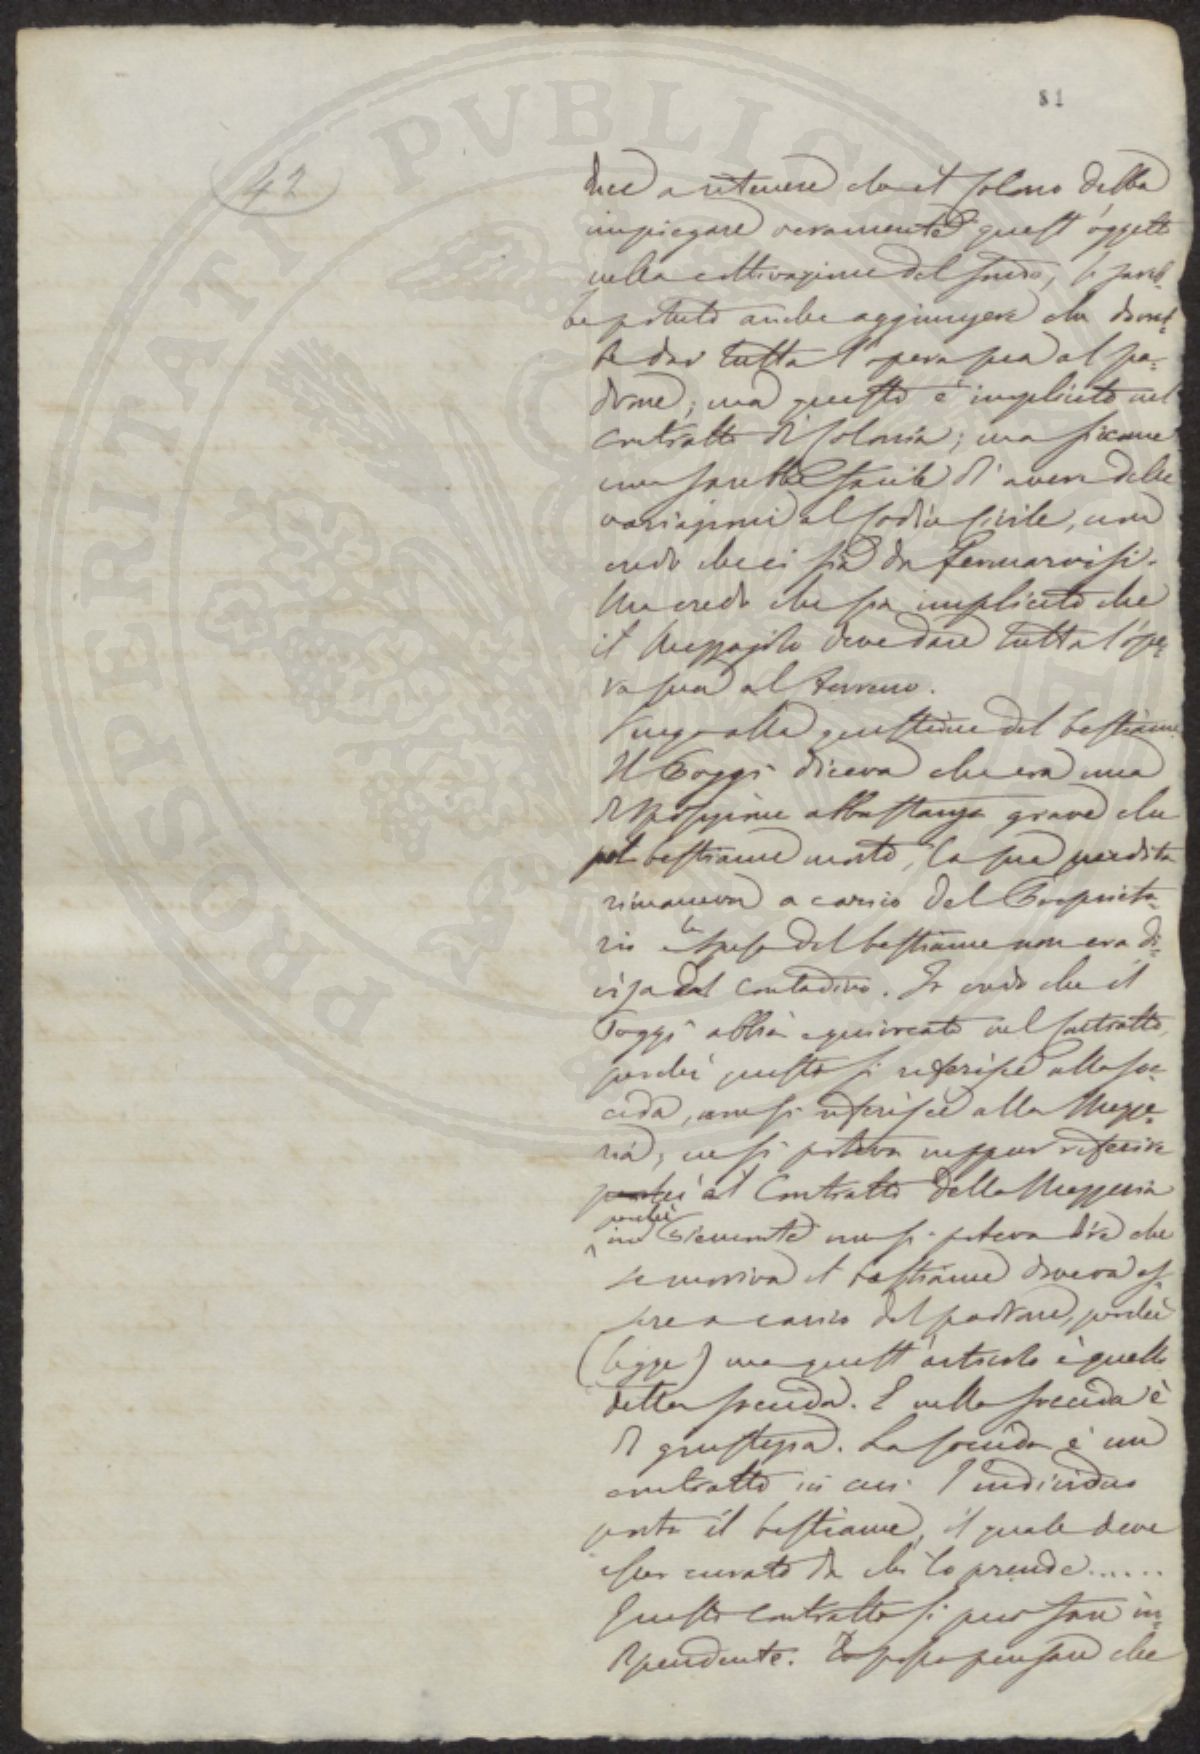 81
42
duce a ritenere che il Colono debba
impiegare veramente quest'oggetto
nella coltivazione del fondo, si sareb-
be potuto anche aggiungere che dovreb-
be dar tutta l'opera sua al pa-
drone; ma questo è implicito nel
contratto di Colonia; ma siccome
non sarebbe facile di avere delle
variazioni al Codice Civile, non
credo che ci sia da fermarvisi.
Ma credo che sia implicito che
il Mezzajolo deve dare tutta l'ope-
ra sua al terreno.
Vengo alla questione del bestiame
Il Poggi diceva che era una
disposizione abbastanza grave che
pel bestiame morto, la sua perdita
rimaneva a carico del Proprieta-
rio e la spesa del bestiame non era di-
visa dal contadino. Io credo che il
Poggi abbia equivocato nel contratto,
perché questo si riferisce alla soc-
cida, non si riferisce alla Mezze-
ria, ne si poteva neppur riferire
al Contratto della Mezzeria
perché non si poteva dire che
se moriva il bestiame doveva es-
sere a carico del padrone, perché
(legge) ma quest'articolo è quello
della soccida. E nella soccida è
di giustizia. La soccida è un
contratto in cui l'individuo
porta il bestiame, il quale deve
esser curato da chi lo prende......
Questo contratto si può fare in-
dipendente. Io posso pensare che